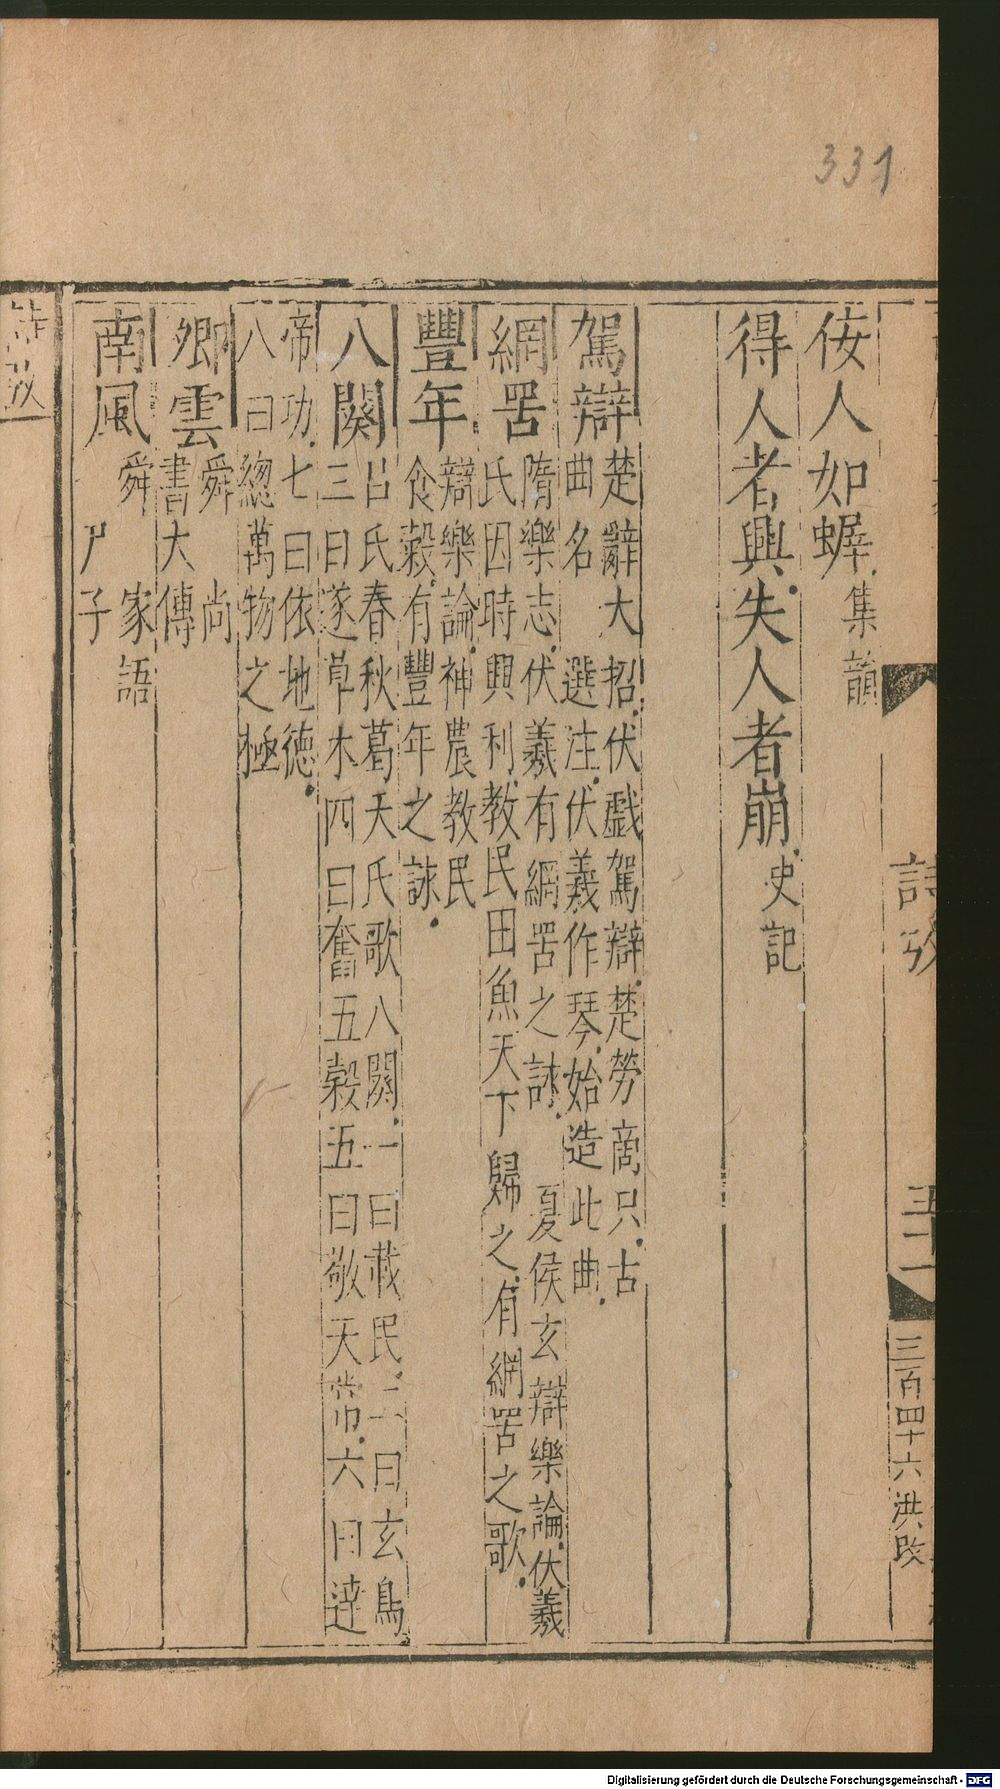 331
侒人如蠏集韻
得人者興失人者崩史記
駕辯楚辭大招伏戲駕辯楚勞商只古
曲名選注伏義作琴始造此曲
網罟隋樂志伏羲有網罟之詠夏侯玄辯樂論伏羲
氏因時興利教民田魚天下歸之有網罟之歌
豐年辯樂論神農教民
食穀有豐年之詠
八闋呂氏春秋葛天氏歌八闋一曰載民二曰玄鳥
三曰遂草木四曰奮五穀五曰敬天常六曰達
帝功七曰依地德
八曰緫萬物之極
卿雲舜尚
書大傳
南風舜家語
尸子
詩攷
三百四十六洪改
詩攷
Digitalisierung gefördert durch die Deutsche Forschungsgemeinschaft - DFG